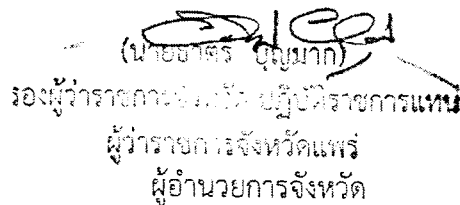 (นายธาตรี บุญมาก)
รองผู้ว่าราชการจังหวัด ปฏิบัติราชการแทน
ผู้ว่าราชการจังหวัดแพร่
ผู้อำนวยการจังหวัด